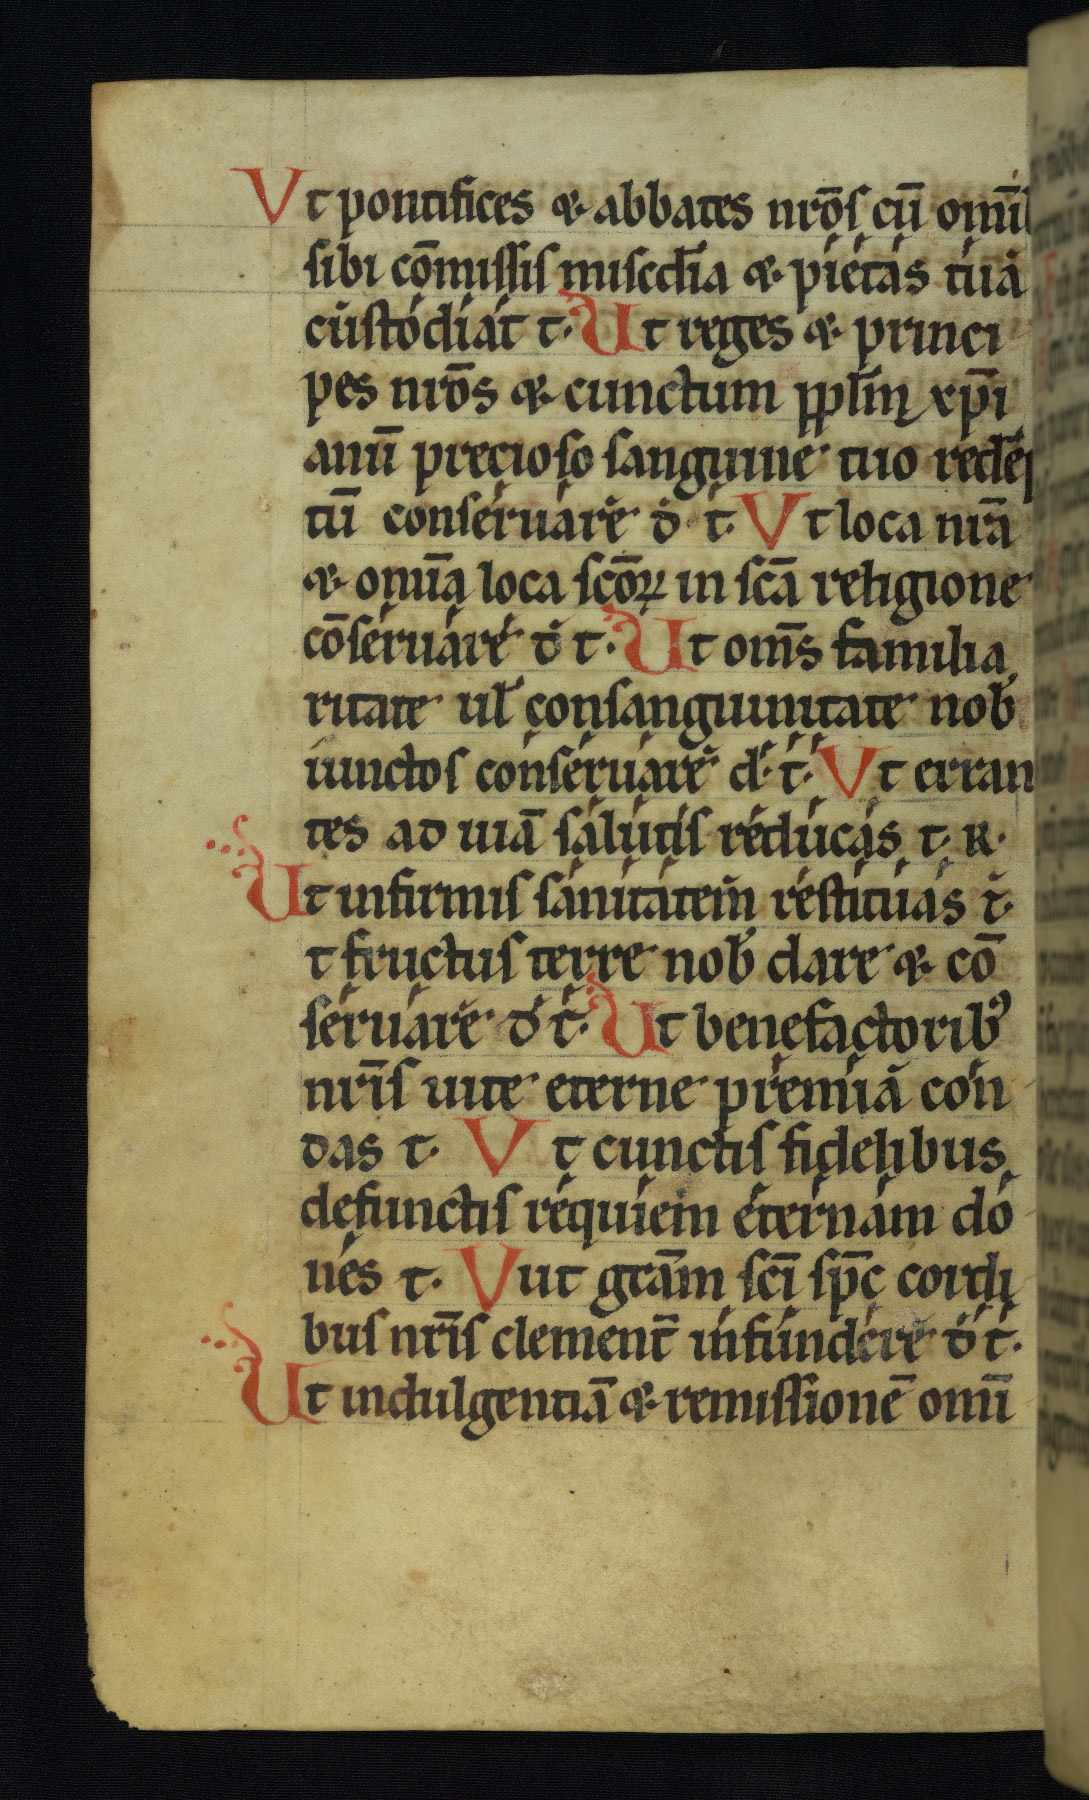 Vt pontifices & abbates nr̄oſ cū omnib
ſibi cōmiſſis miſcd̄ia & pietas tua
cuſtodiat t. Ut reges & princi
pes nr̄os & cunctum pplm̄ xp̄i
anū precioſo ſanguine tuo redēp
tū conſeruare d. t. Vt loca nr̄a
& om̄ia loca ſcōꝝ in ſcā religione
cōſeruare d t. Ut om̄s familia
ritate ul̄ conſanguinitate nob̄
iunctoſ conſeruare d. t. Vt erran
tes ad uiā ſalutiſ reducas t. R.
Ut infirmiſ ſanitatem reſtituas t.
t fructuſ terre nob̄ dare & cō
ſeruare d t. Ut benefactorib᾿
nr̄iſ uite eterne premia con
das t. Vt cunctiſ fidelibus
defunctiſ requiem eternam do
nes t. Vut gr̄am ſcī ſp̄c cordi
buſ nr̄is clement̄ infundere d t.
Ut indulgentiā & remiſſionē omī